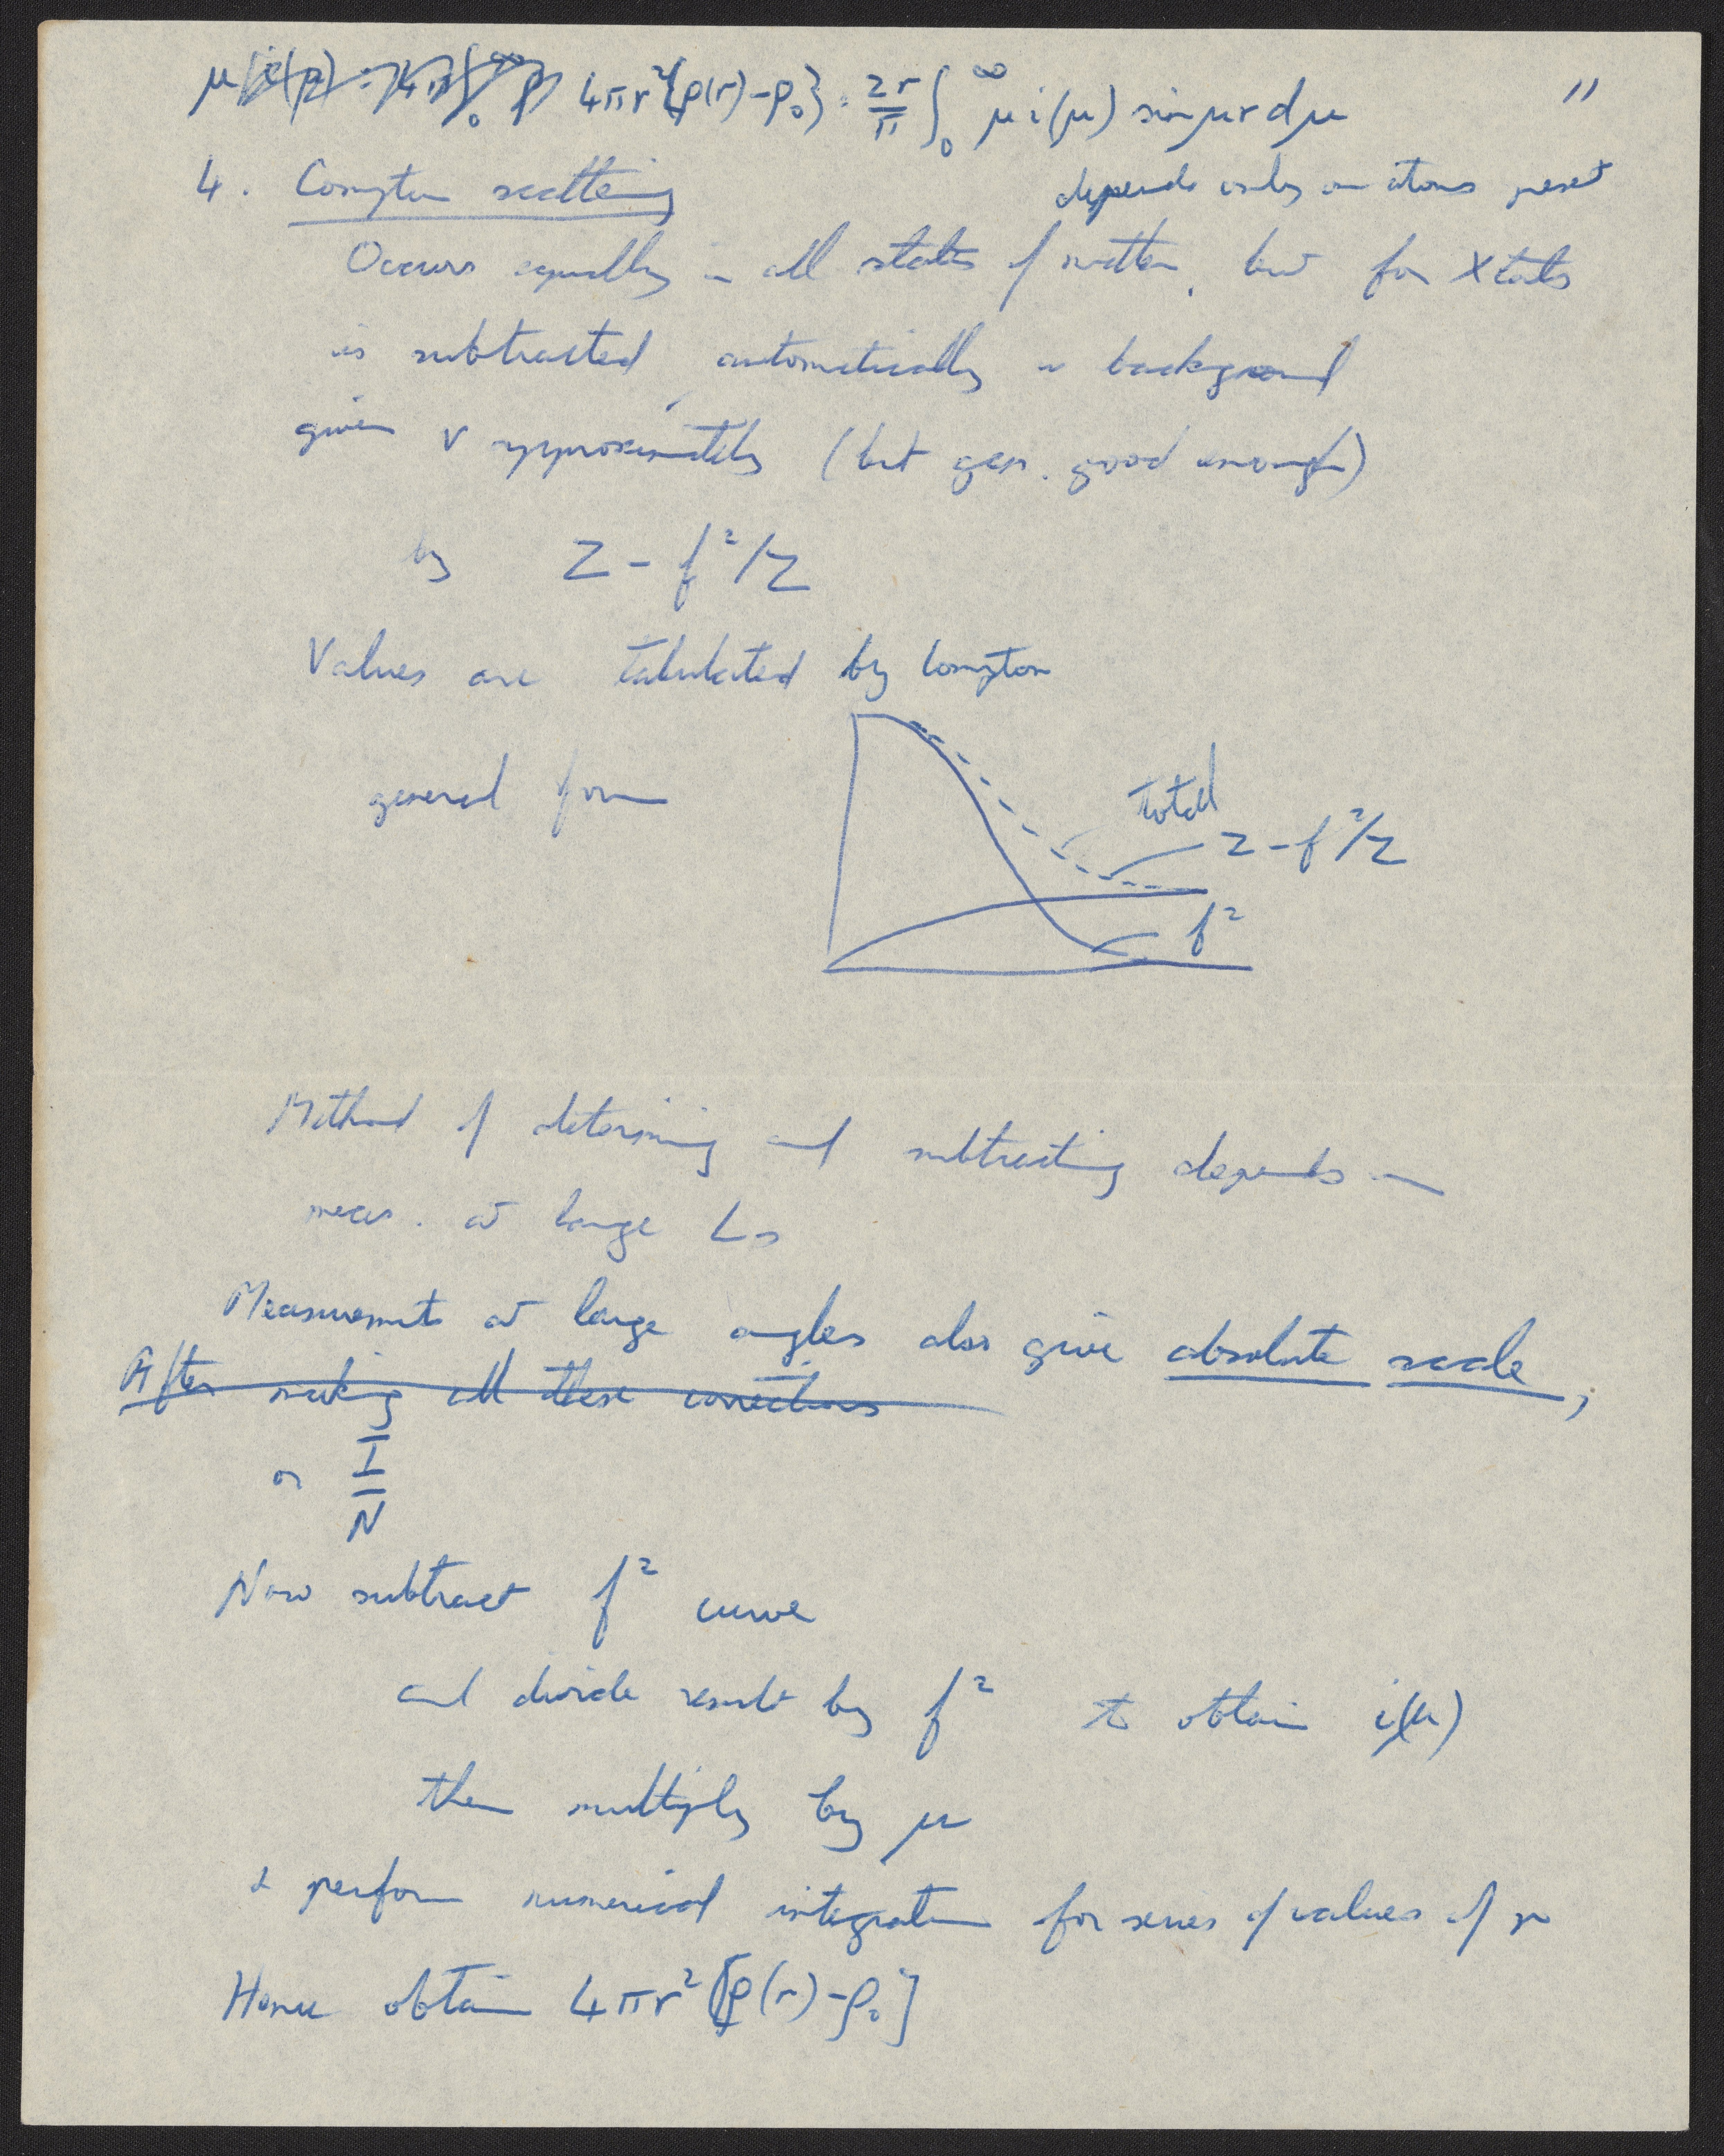 4πr²{ρ(r)-ρ₀} = 2r/π ∫₀^∞ μ i(μ) sin μr dμ
11
4. Compton scattering
depends only on atoms present
Occurs equally in all states of matter, but for Xtals
is subtracted automatically in background
given v approximately (but gen. good enough)
by Z - f²/Z
Values are tabulated by Compton
general form
total
Z - f²/Z
f²
Method of determining and subtracting depends on
meas. at large ∠s
Measurements at large angles also give absolute scale,
After making all these corrections
or I/N
Now subtract f² curve
and divide result by f² to obtain i(μ)
then multiply by μ
& perform numerical integration for series of values of r
Hence obtain 4πr²[ρ(r)-ρ₀]